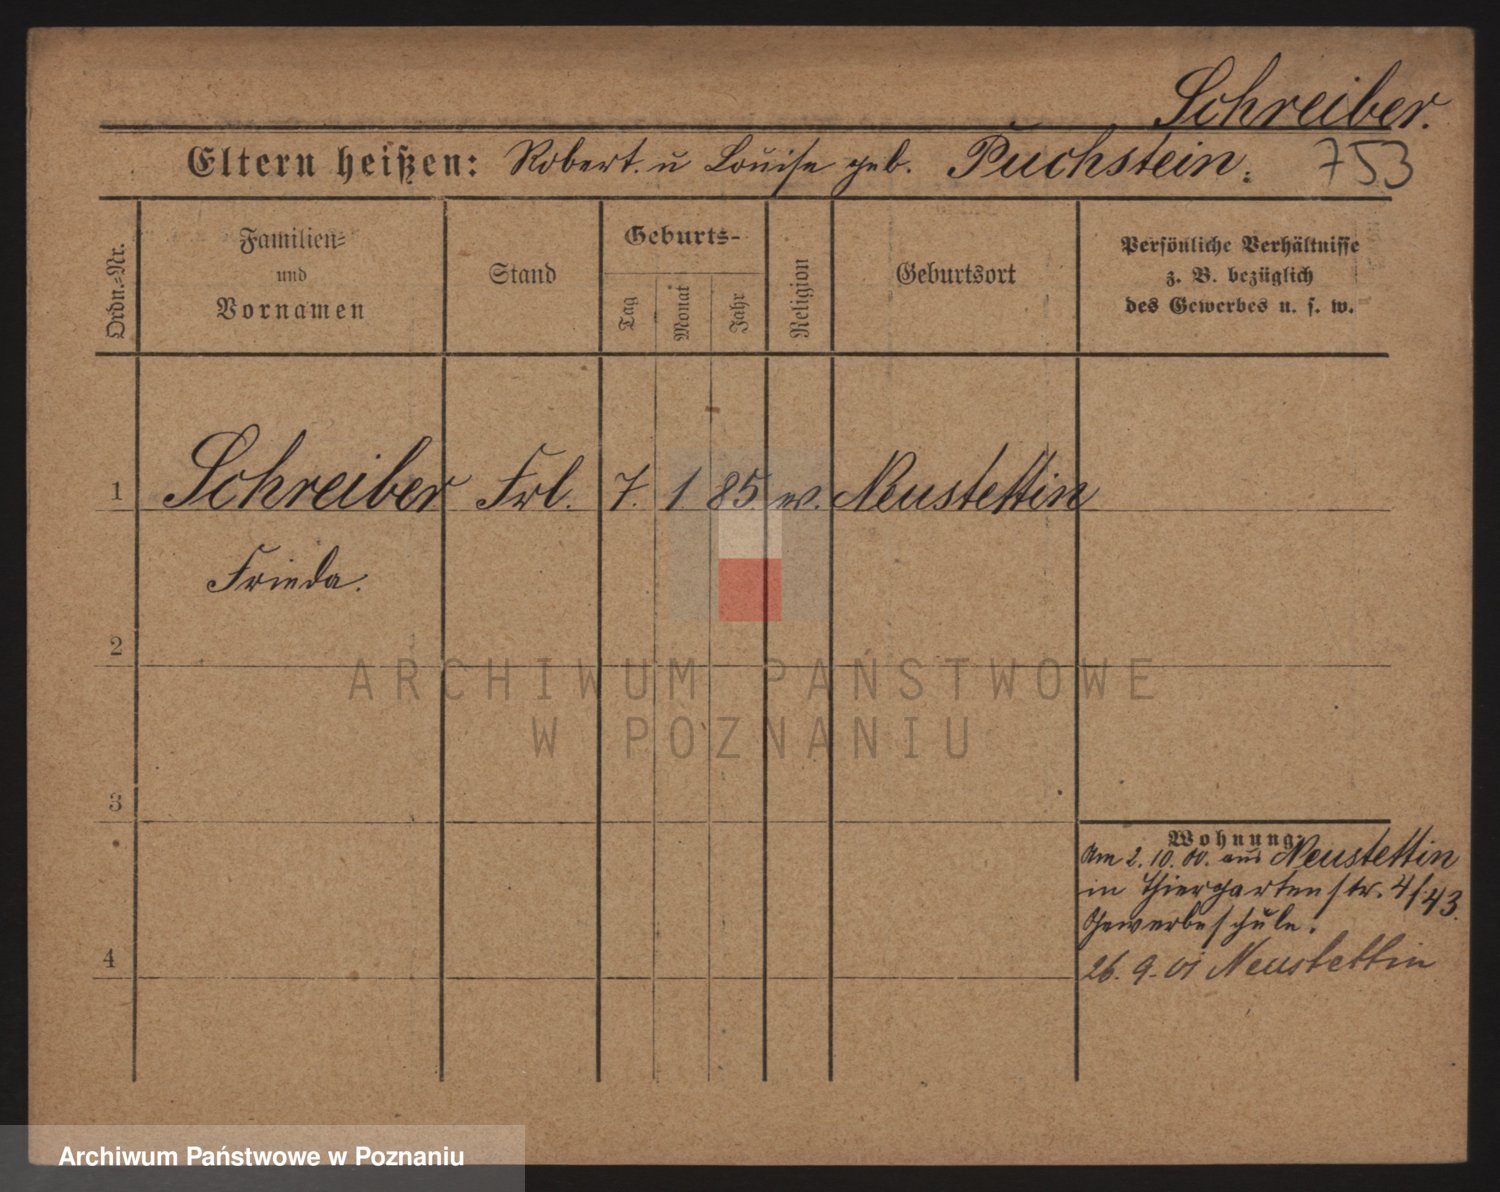 Schreiber.
Eltern heißen: Robert. u Louise geb. Puchstein. 753
Ordn.-Nr.
Familien-
und
Vornamen
Stand
Geburts-
Tag
Monat
Jahr
Religion
Geburtsort
Persönliche Verhältnisse
z. B. bezüglich
des Gewerbes u. s. w.
1 Schreiber Frl. 7. 1 85. ev. Neustettin
Frieda.
2
ARCHIWUM PAŃSTWOWE
W POZNANIU
3
Wohnung:
Am 2. 10. 00. aus Neustettin
in Thiergartenstr. 4/43.
Gewerbeschule.
4
26. 9. 01 Neustettin
Archiwum Państwowe w Poznaniu